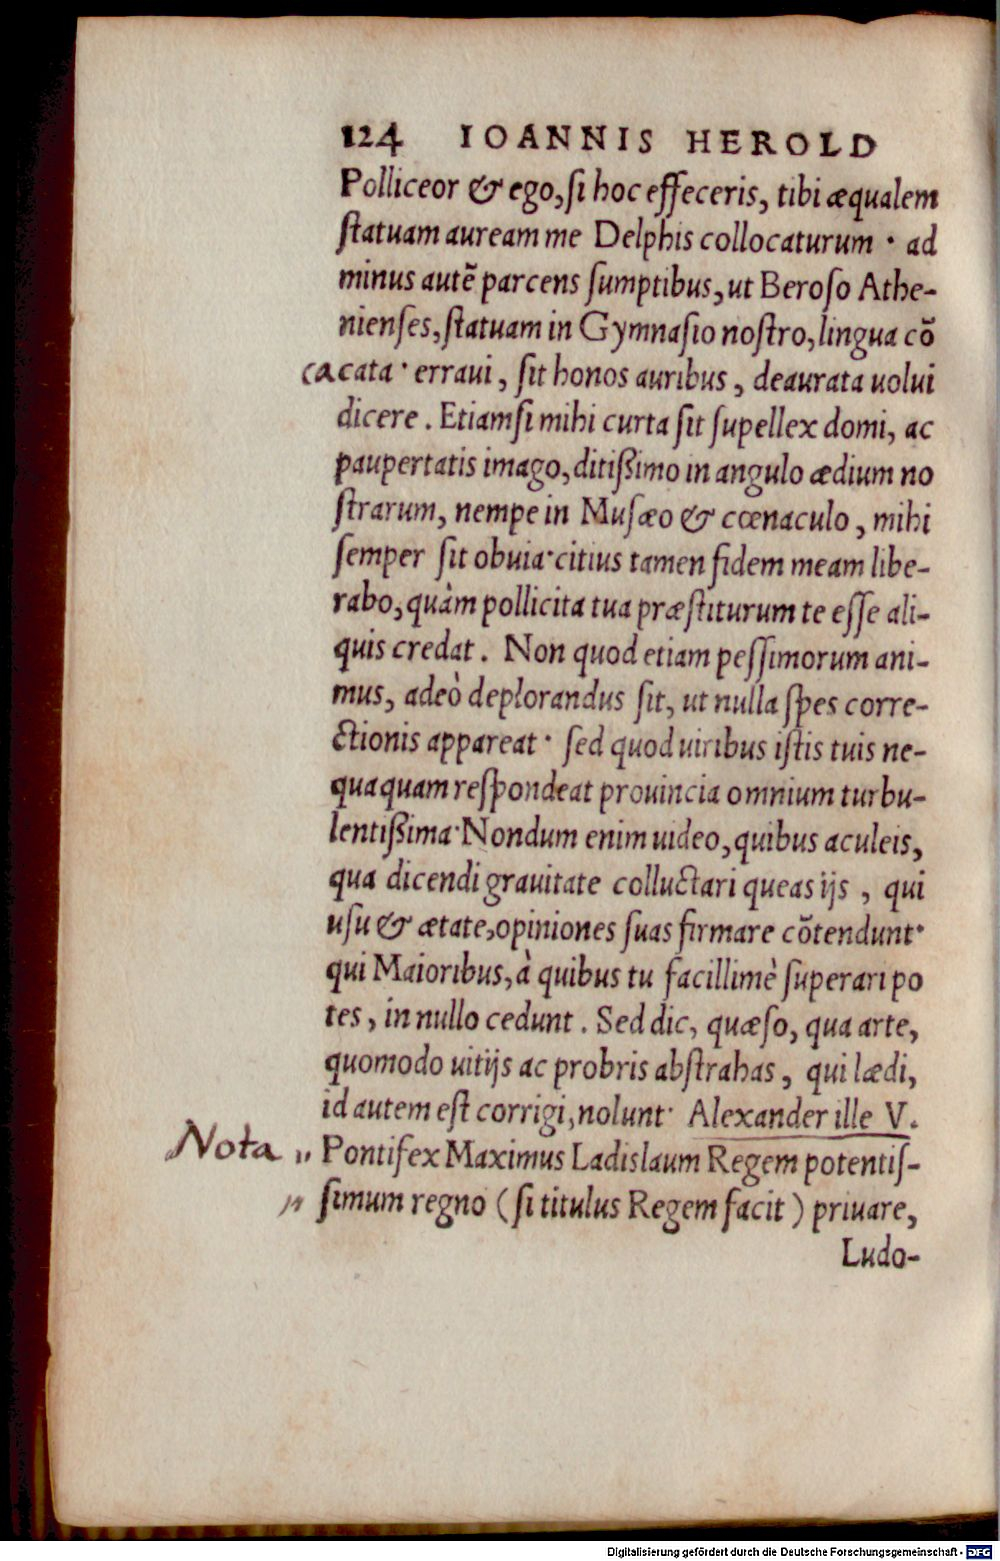 124 IOANNIS HEROLD
Polliceor & ego, ſi hoc effeceris, tibi æqualem
ſtatuam auream me Delphis collocaturum · ad
minus autẽ parcens ſumptibus, ut Beroſo Athe-
nienſes, ſtatuam in Gymnaſio noſtro, lingua cõ
cacata · erraui, ſit honos auribus, deaurata uolui
dicere. Etiamſi mihi curta ſit ſupellex domi, ac
paupertatis imago, ditißimo in angulo ædium no
ſtrarum, nempe in Muſæo & cœnaculo, mihi
ſemper ſit obuia· citius tamen fidem meam libe-
rabo, quàm pollicita tua præſtiturum te eſſe ali-
quis credat. Non quod etiam peſſimorum ani-
mus, adeò deplorandus ſit, ut nulla ſpes corre-
ctionis appareat · ſed quod uiribus iſtis tuis ne-
quaquam reſpondeat prouincia omnium turbu-
lentißima· Nondum enim uideo, quibus aculeis,
qua dicendi grauitate colluctari queas ijs, qui
uſu & ætate, opiniones ſuas firmare cõtendunt·
qui Maioribus, à quibus tu facillimè ſuperari po
tes, in nullo cedunt. Sed dic, quæſo, qua arte,
quomodo uitijs ac probris abſtrahas, qui lædi,
id autem eſt corrigi, nolunt· Alexander ille V.
Nota " Pontifex Maximus Ladislaum Regem potentiſ-
" ſimum regno (ſi titulus Regem facit) priuare,
Ludo-
Digitalisierung gefördert durch die Deutsche Forschungsgemeinschaft - DFG